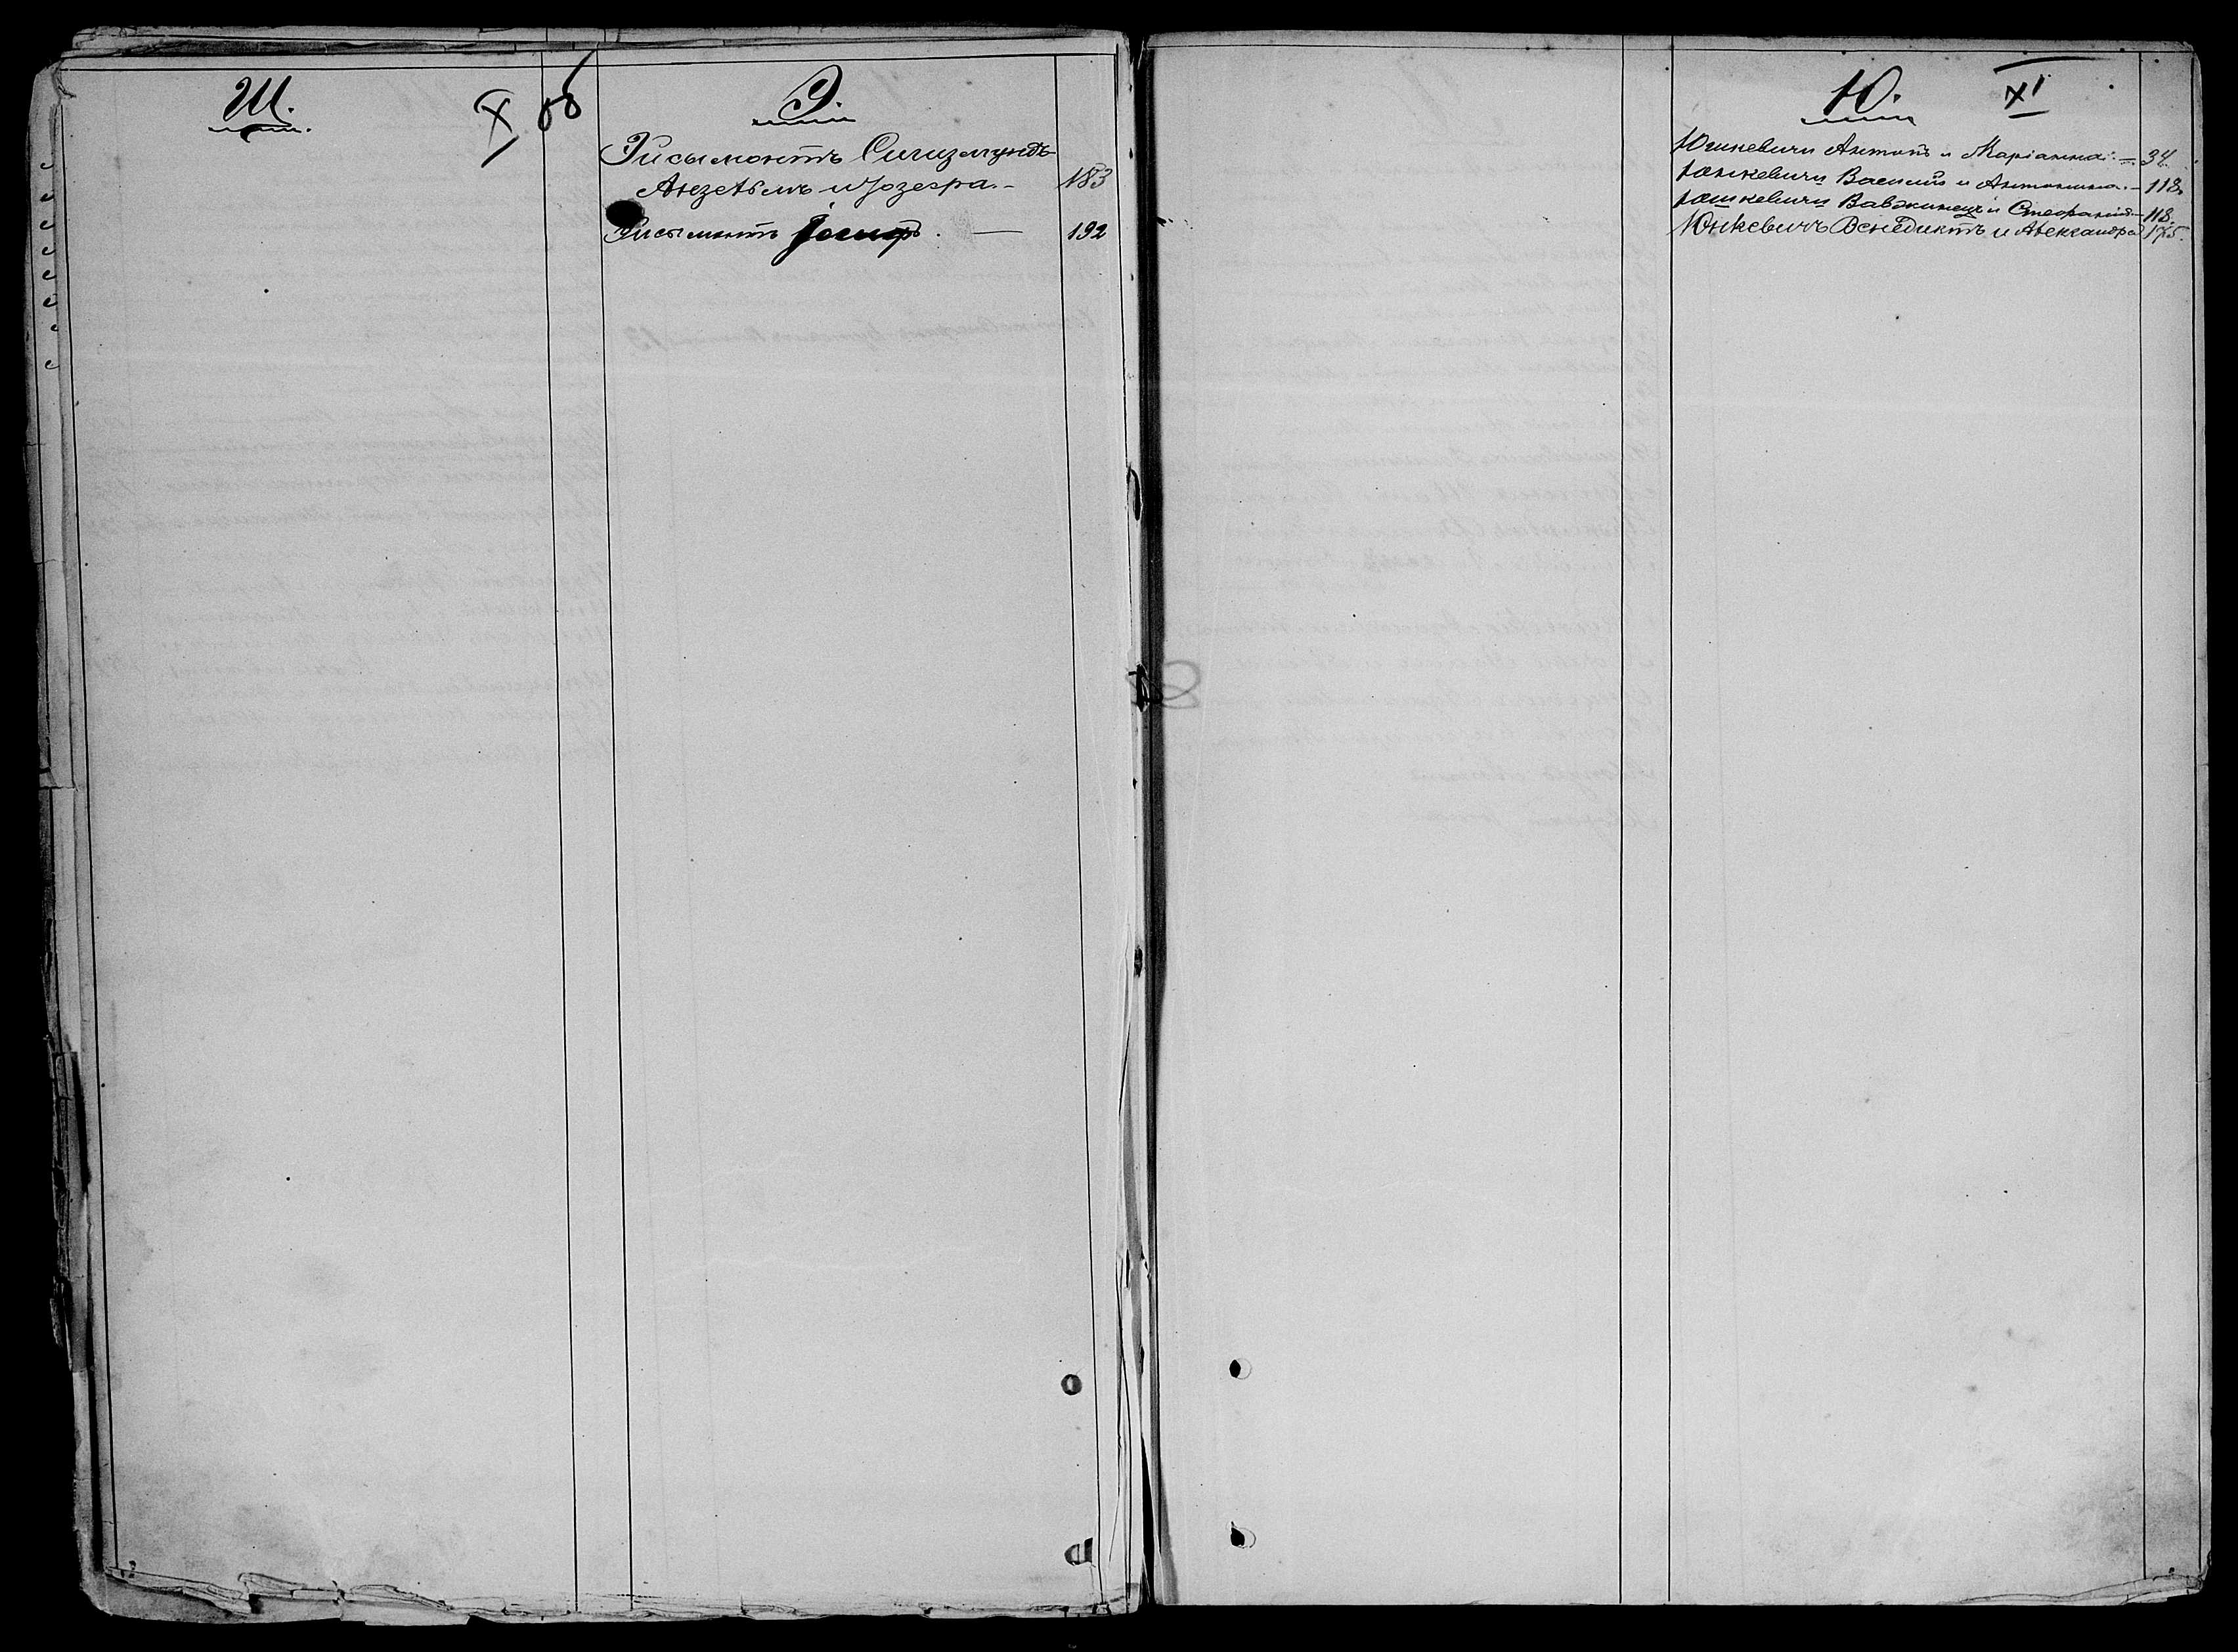 Щ.
X об
Э.
Эйсымонтъ Сигизмундъ
Анзельмъ и Юзефа. - 183
Эйсымонтъ Іосифъ. — 192
Ю.
XI
Юшкевичи Антонъ и Маріанна. — 34.
Юшкевичи Василій и Антонина. — 118.
Юшкевичи Вавжинецъ и Стефанія — 118.
Юнкевичъ Венедиктъ и Александра 175.